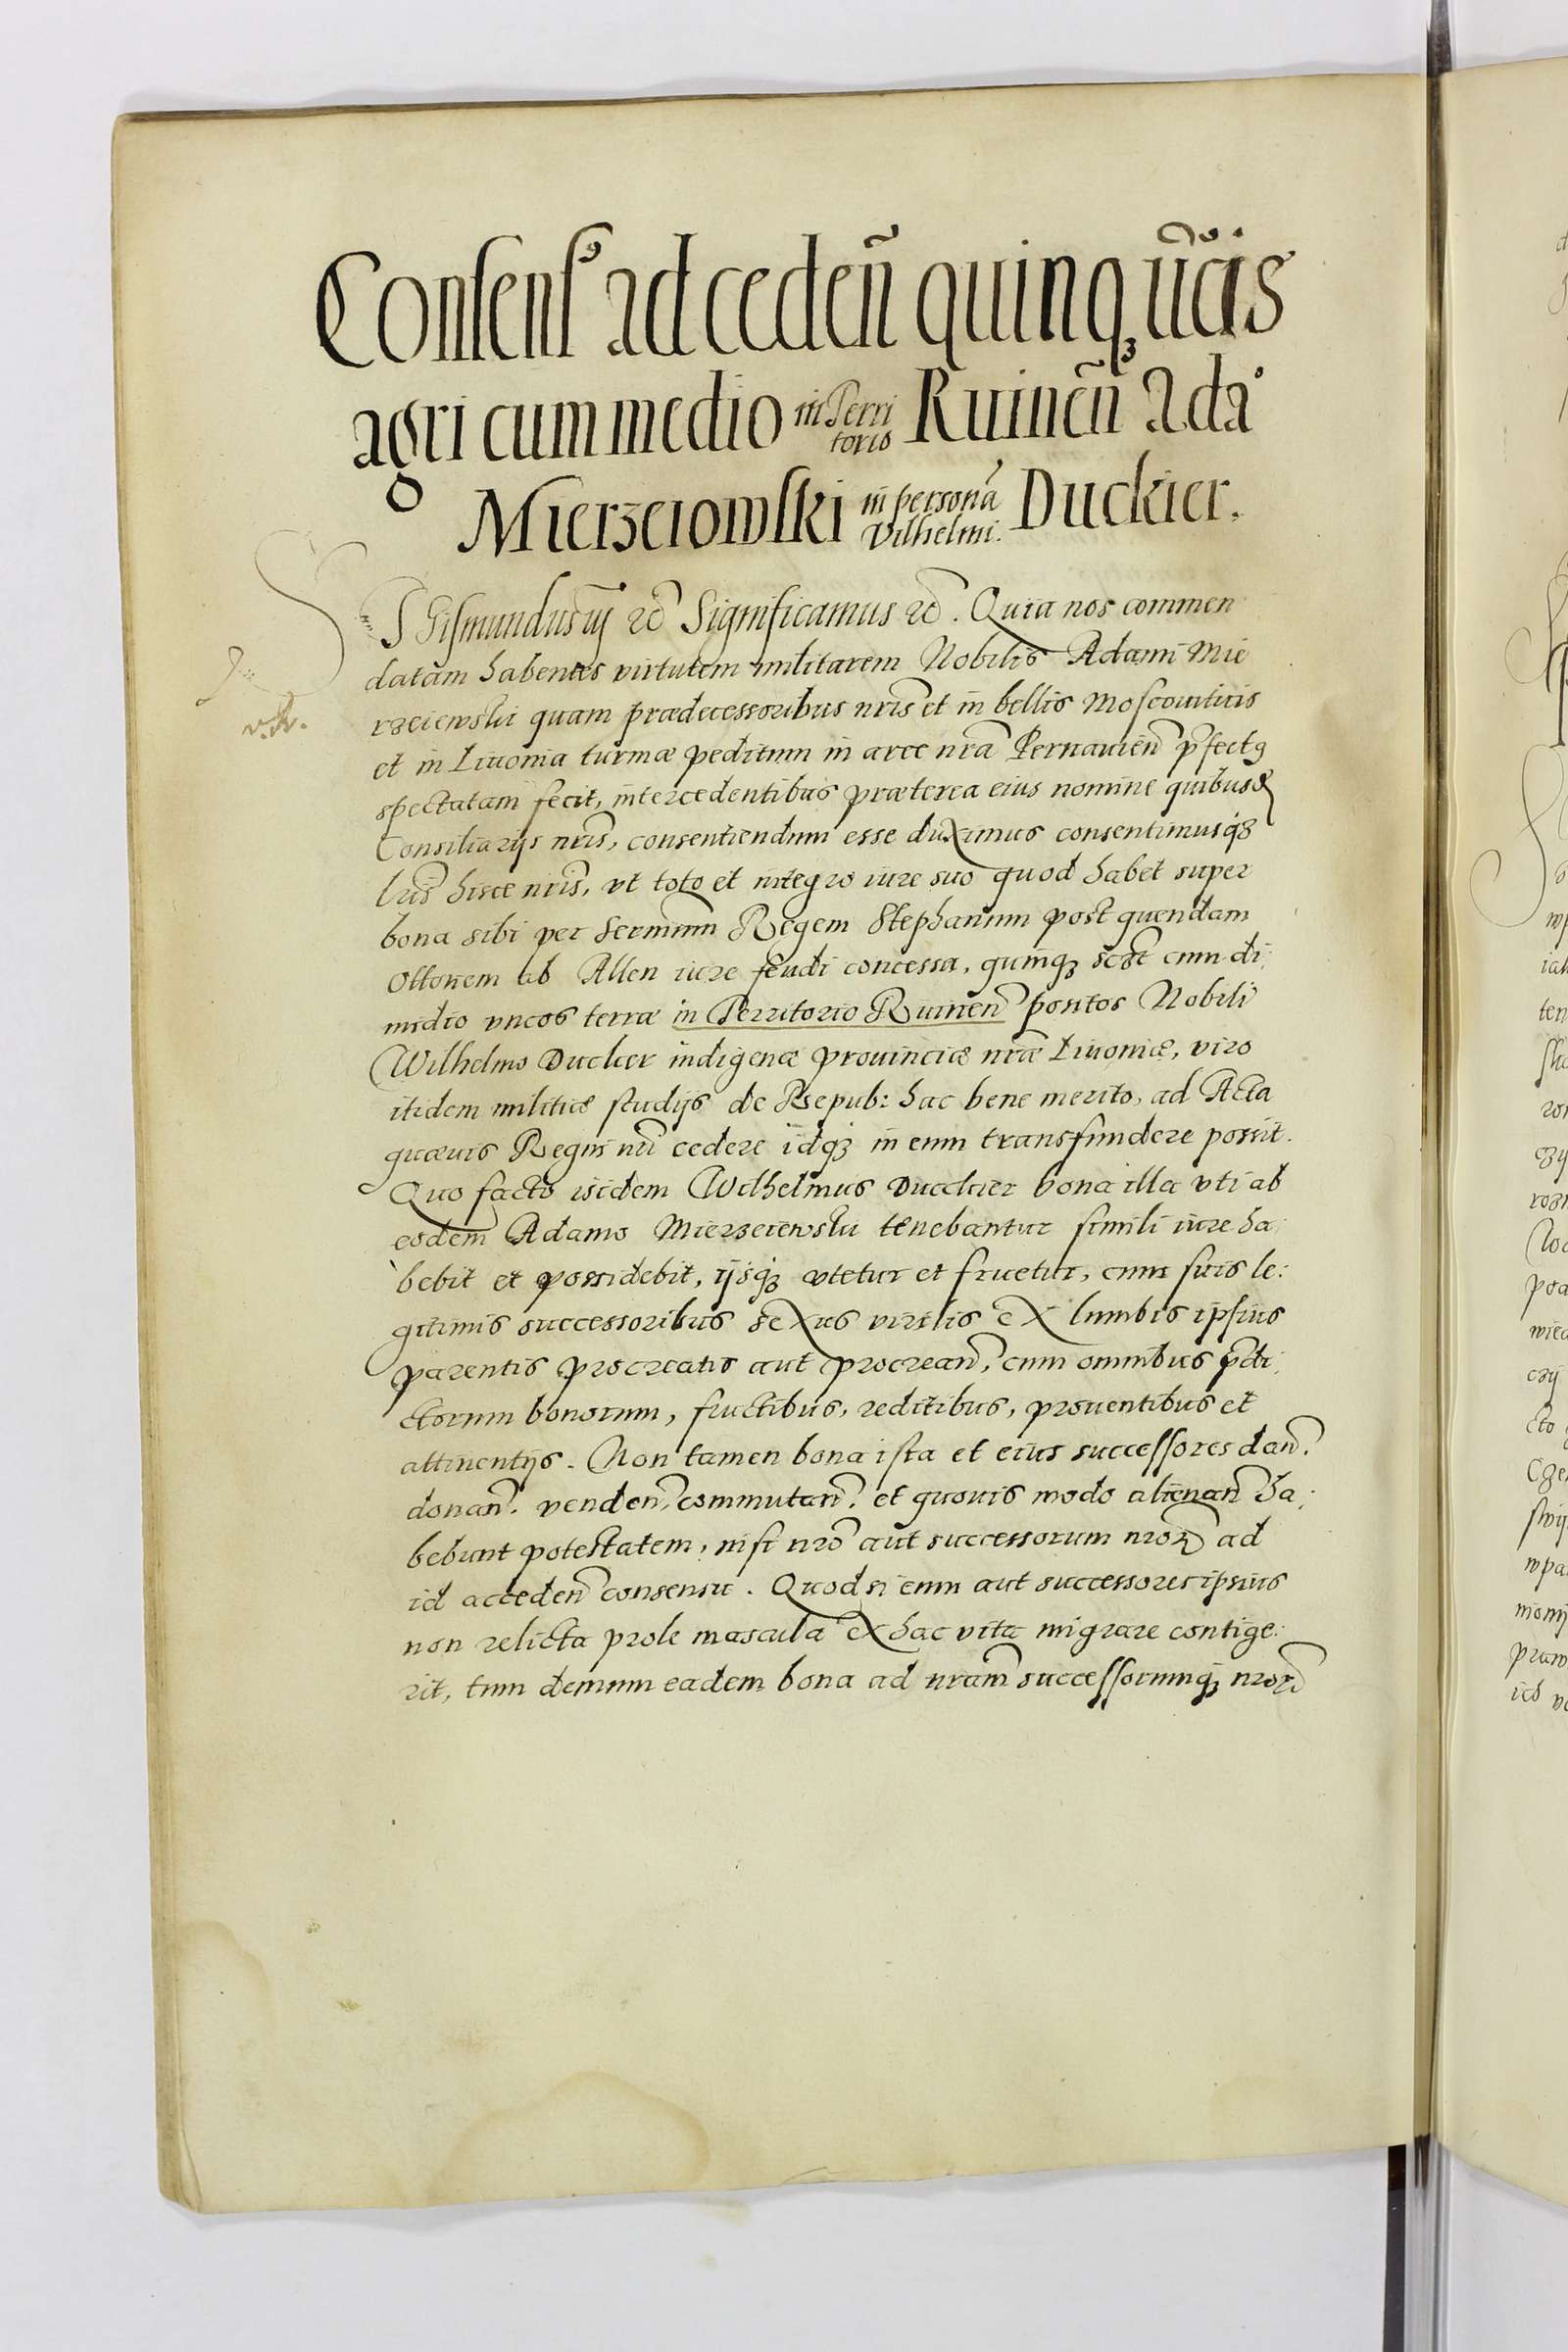 Consensꝰ ad ceden̄ quinqꝫ ūcis
agri cum medio in Terri torio Ruinen̄ Ada°
Mierzeiowski in persona Vilhelmi. Duckier.
SGismundus iij ꝛc̄ Significamus ꝛc̄. Quia nos commen
datam habentes virtutem militarem Nobilis Adami Mie
rzeiewski quam prædecessoribus nr̄is et in bellis Moscouiticis
et in Liuonia turmæ peditum in arce nr̄a Pernauien̄ p̄fectꝰ
spectatam fecit, intercedentibus præterea eius nomine quibusd
Consiliarijs nr̄is, consentiendum esse duximus consentimusqꝫ
lr̄is hisce nr̄is, vt toto et integro iure suo quod habet super
bona sibi per Sermum Regem Stephanum post quendam
Ottonem ab Allen iure feudi concessa, quinqꝫ sclt cum di:
midio vncos terræ in Territorio Ruinen̄ positos Nobili
Wilhelmo Ducker indigenæ prouinciæ nr̄æ Liuoniæ, viro
itidem militiæ studijs de Repub: hac bene merito, ad Acta
quæuis Regni nr̄i cedere idqꝫ in eum transfundere possit.
Quo facto isidem Wilhelmus Duckier bona illa vti ab
eodem Adamo Mierzeiewski tenebantur simili iure ha:
bebit et possidebit, ijsqꝫ vtetur et fruetur, cum suis le:
gitimis successoribus sexus virilis ex lumbis ipsius
parentis procreatis aut procrean̄, cum omnibus p̄di:
ctorum bonorum, fructibus, reditibus, prouentibus et
attinentijs. Non tamen bona ista et eius successores dan̄.
donan̄. venden̄, commutan̄. et quouis modo alienan̄ ha:
bebunt potestatem, nisi nr̄o aut successorum nr̄oꝝ ad
id acceden̄ consensu. Quod si eum aut successores ipsius
non relicta prole mascula ex hac vita migrare contige:
rit, tum demum eadem bona ad nr̄am successorumqꝫ nr̄oꝝ